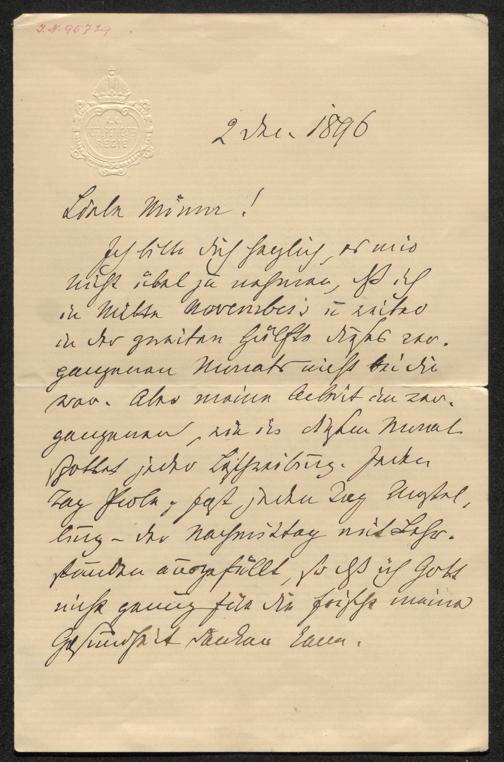 J.N. 95729
REGIE
2 Dec. 1896
Liebe Minna!
Ich bitte dich herzlich, es mir
nicht übel zu nehmen, daß ich
in Mitte November u
in der zweiten Hälfte dieses ver-
gangenen Monats nicht bei dir
war. Aber meine Arbeit im ver-
gangenen, wie in diesem Monat
spottet jeder Beschreibung. Jeden
Tag Probe, fast jeden Tag Vorstel-
lung – der Nachmittag mit Lehr-
stunden ausgefüllt, so daß ich Gott
nicht genug für die Frische meiner
Gesundheit danken kann.